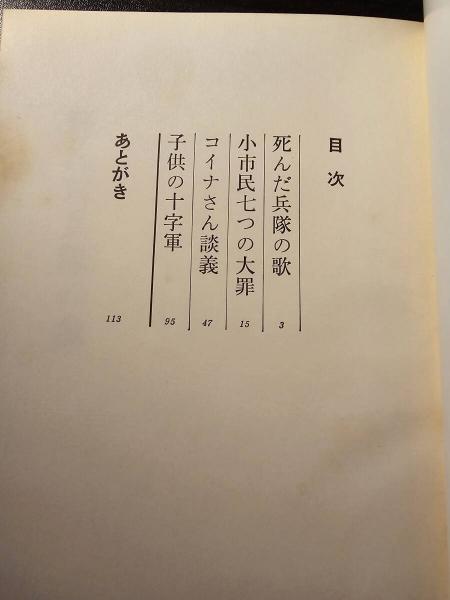 目次
死んだ兵隊の歌 3
小市民七つの大罪 15
コイナさん談義 47
子供の十字軍 95
あとがき 113